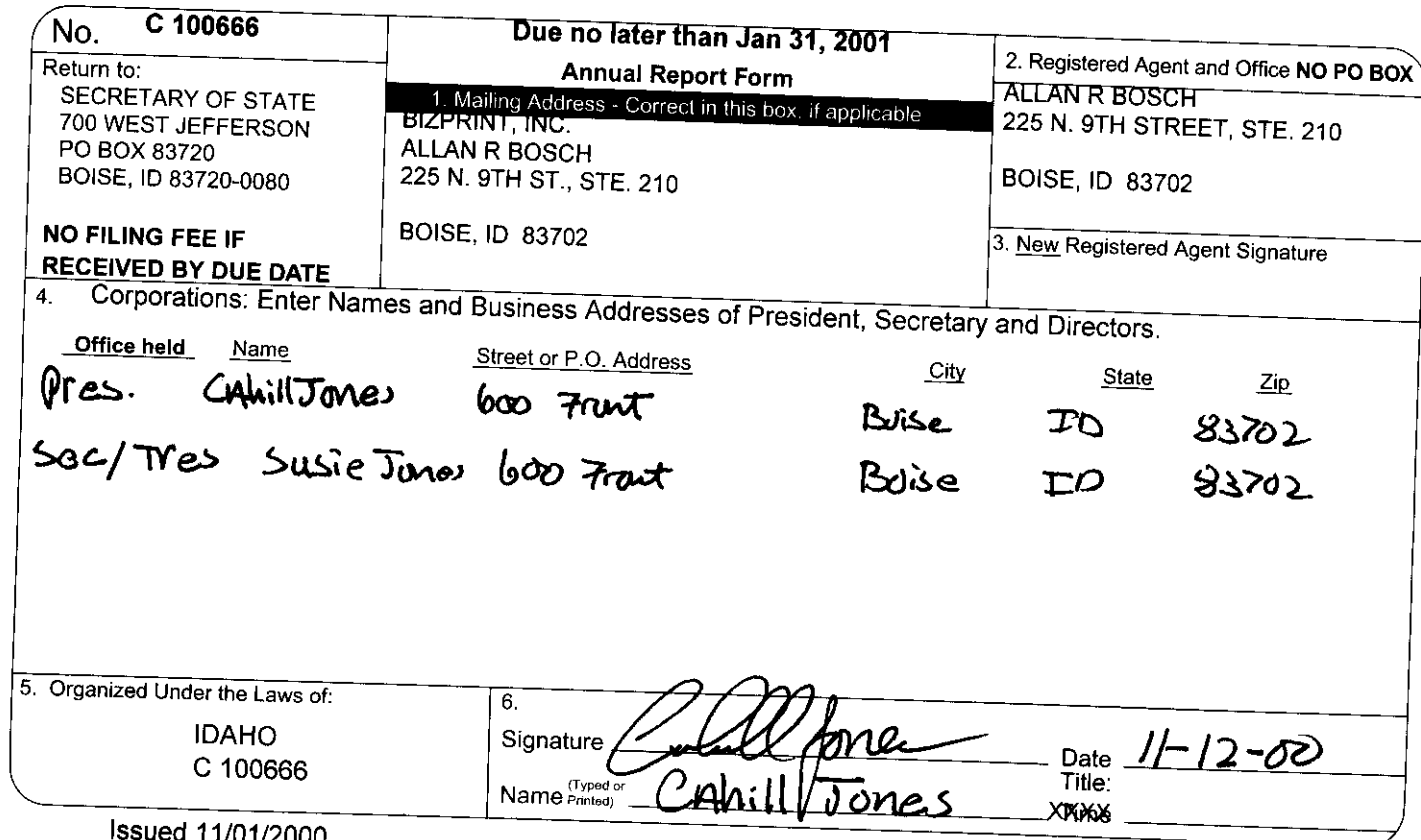 No. C 100666
Return to:
SECRETARY OF STATE
700 WEST JEFFERSON
PO BOX 83720
BOISE, ID 83720-0080
NO FILING FEE IF
RECEIVED BY DUE DATE
Due no later than Jan 31, 2001
Annual Report Form
1. Mailing Address - Correct in this box, if applicable
BIZPRINT, INC.
ALLAN R BOSCH
225 N. 9TH ST., STE. 210
BOISE, ID 83702
2. Registered Agent and Office NO PO BOX
ALLAN R BOSCH
225 N. 9TH STREET, STE. 210
BOISE, ID 83702
3. New Registered Agent Signature
4. Corporations: Enter Names and Business Addresses of President, Secretary and Directors.
Office held Name Street or P.O. Address City State Zip
Pres. CAhill Jones 600 Front Boise ID 83702
Sec/Tres Susie Jones 600 Front Boise ID 83702
5. Organized Under the Laws of:
IDAHO
C 100666
6.
Signature Cahill Jones Date 11-12-00
Name (Typed or Printed) CAhill Jones Title:
Issued 11/01/2000